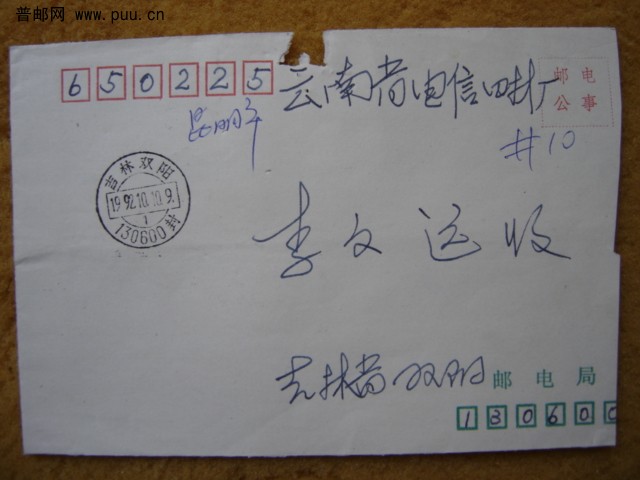 普邮网 www.puu.cn
650225
云南省电信器材厂
昆明市
邮电
公事
#10
吉林双阳
1992.10.10.9.
1
130600
李文运收
吉林省双阳邮电局
130600